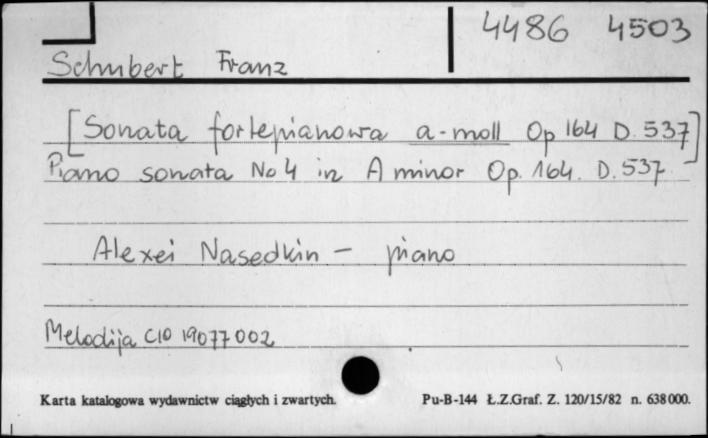 4486 4503
Schubert Franz
[Sonata fortepianowa a-moll Op 164 D. 537]
Piano sonata No 4 in A minor Op. 164. D. 537
Alexei Nasedkin – piano
Melodija C10 19077002
Karta katalogowa wydawnictw ciągłych i zwartych. Pu-B-144 Ł.Z.Graf. Z. 120/15/82 n. 638000.